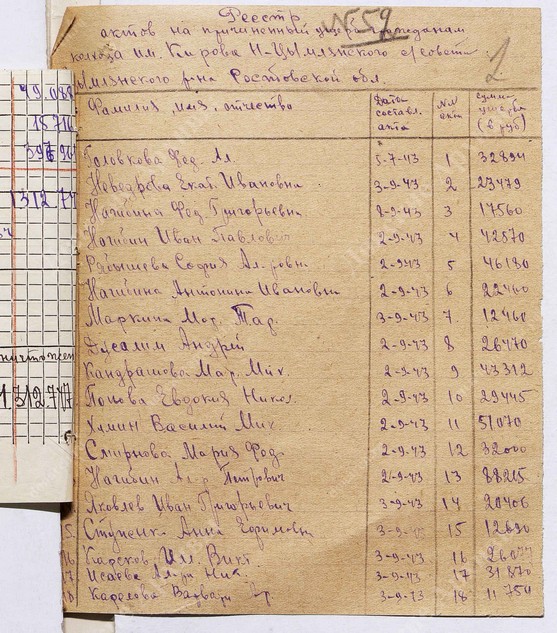 Реестр
№ 59
актов на причиненный ущерб гражданам
колхоза им. Кирова Н-Цымлянского с/совета
Цымлянского р-на Ростовской обл.
2
Фамилия, имя, отчество Дата составл. акта №№ акта Сумма ущерба (в руб)
Головкова Фед. Ал. 5-7-43 1 32894
Неведрова Екат. Ивановна 3-9-43 2 23479
Нагибина Фед. Григорьевна 8-9-43 3 17560
Нагибин Иван Павлович 2-9-43 4 42870
Рябышева София Ал-ровна 2-9-43 5 46180
Нагибина Антонина Ивановна 2-9-43 6 22460
Маркина Мар. 3-9-43 7 12460
Андрей 2-9-43 8 26470
Кандрашова Мар. Мих. 2-9-43 9 43312
Попова Евдокия Никол. 2-9-43 10 29445
Химин Василий Мих 2-9-43 11 51070
Смирнова Мария Фед. 2-9-43 12 32000
Нагибин Петрович 2-9-43 13 88215
Яковлев Иван Григорьевич 3-9-43 14 20406
5. Анна Ефимовна 3-9-43 15
16 3-9-43 16
17 Исаева Ал-ра Ник. 3-9-43 17 31870
18 Карелова 3-9-43 18 11750
49.088
18 716
1312 77